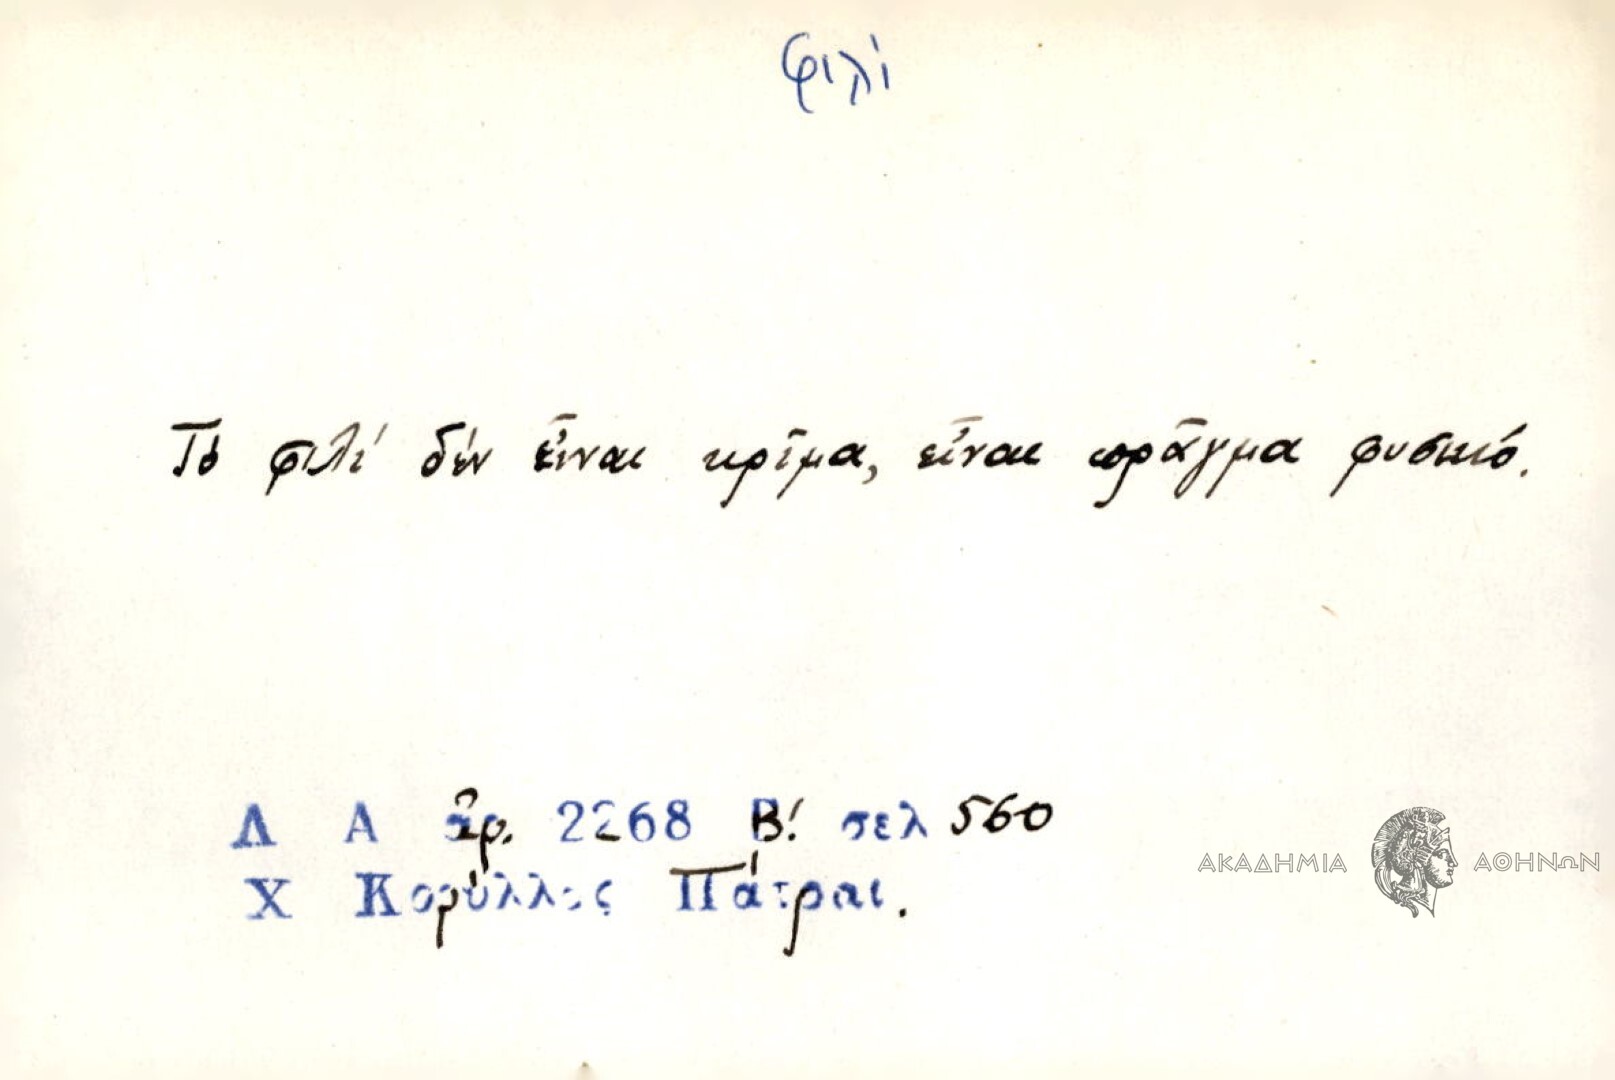 φιλί
Τό φιλί δέν εἶναι κρῖμα, εἶναι πρᾶγμα φυσικό.
Λ Α ἀρ. 2268 Β! σελ 560
Χ Κορύλλος Πάτραι.
ΑΚΑΔΗΜΙΑ ΑΘΗΝΩΝ